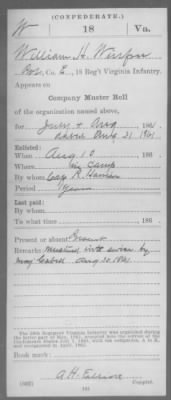 (CONFEDERATE.)
W 18 Va.
William H.
Co. E, 18 Reg't Virginia Infantry.
Appears on
Company Muster Roll
of the organization named above,
for July & Aug 186
dated Aug 31, 1861
Enlisted:
When Aug 10 186 .
Where Camp
By whom Capt R.
Period 1 year
Last paid:
By whom
To what time 186 .
Present or absent Present
Remarks: Mustered into service by
Maj Cabell Aug 20 1861
The 18th Regiment Virginia Infantry was organized during
the latter part of May, 1861,
Confederate States July 1, 1861, with ten companies.
re-organized in April, 1862.
Book mark:
A.H.
(642) Copyist.